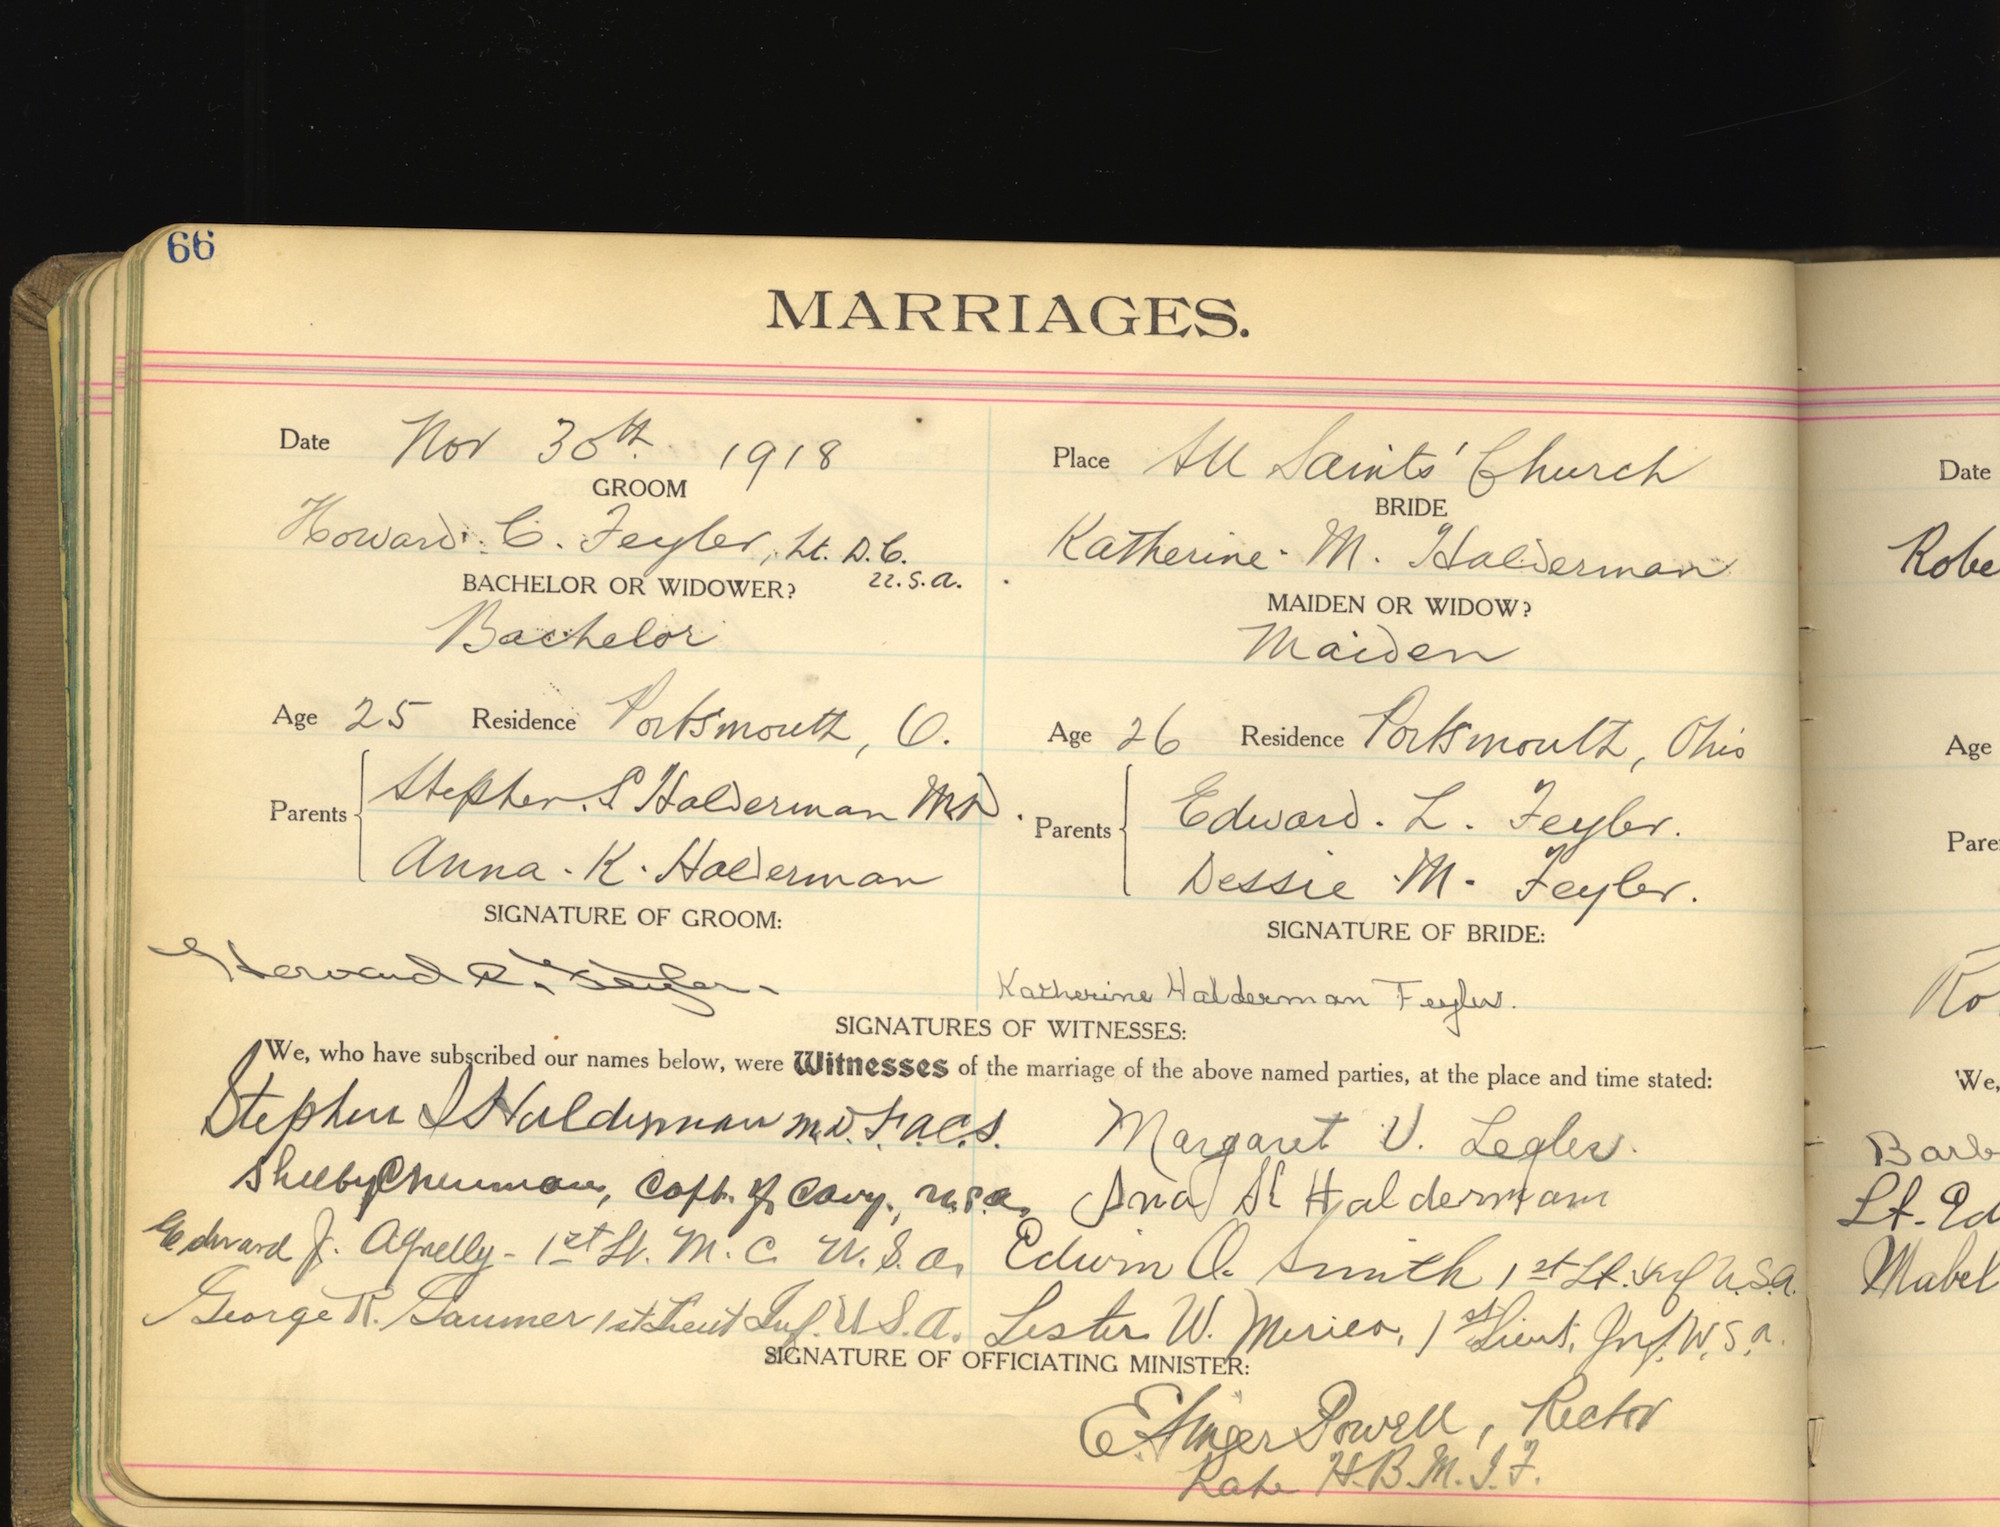 66
MARRIAGES.
Date Nov 30th 1918
Place All Saints' Church
GROOM
BRIDE
Howard C. Feyler, Lt. D.C.
U.S.A.
Katherine M. Halderman
BACHELOR OR WIDOWER?
MAIDEN OR WIDOW?
Bachelor
Maiden
Age 25 Residence Portsmouth, O.
Age 26 Residence Portsmouth, Ohio
Parents Stephen S Halderman MD.
Anna K. Halderman
Parents Edward L. Feyler.
Dessie M. Feyler.
SIGNATURE OF GROOM:
SIGNATURE OF BRIDE:
Howard C. Feyler.
Katherine Halderman Feyler.
SIGNATURES OF WITNESSES:
We, who have subscribed our names below, were Witnesses of the marriage of the above named parties, at the place and time stated:
Stephen S Halderman M.D. F.A.C.S.
Margaret V. Legler.
Shelby C Newman, Capt. of Cavy., U.S.A.
Halderman
Edward J. Agnelly - 1st Lt. M.C. U.S.A.
Edwin O. Smith 1st Lt. Inf U.S.A.
George R. Gaumer 1st Lieut Inf. U.S.A.
Lester W. 1st Lieut. Inf. U.S.A.
SIGNATURE OF OFFICIATING MINISTER:
E. Ainger Powell, Rector
Late H.B.M.I.F.
Date
Robe
Age
Pare
Ro
We,
Barb
Lt. Ed
Mabel